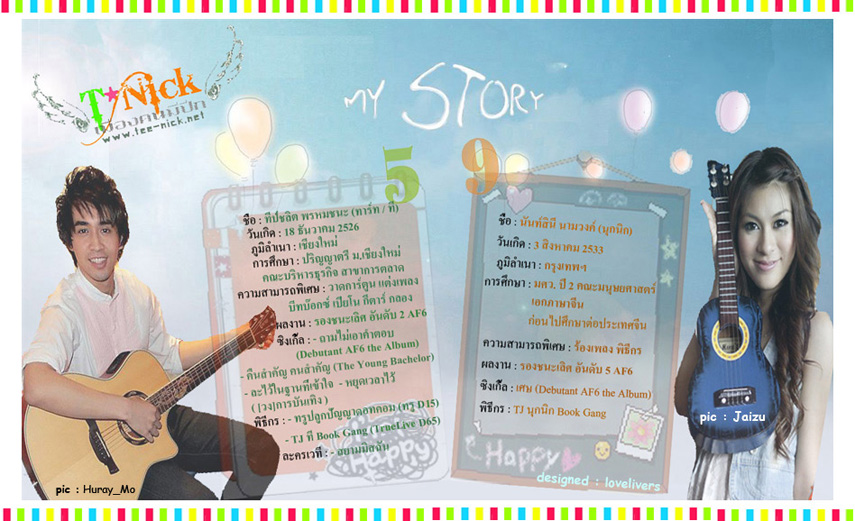 T★Nick
เมืองคนมีปีก
www.tee-nick.net
MY STORY
5
ชื่อ : ทีปชลิต พรหมชนะ (ทาร์ท / ที)
วันเกิด : 18 ธันวาคม 2526
ภูมิลำเนา : เชียงใหม่
การศึกษา : ปริญญาตรี ม.เชียงใหม่
คณะบริหารธุรกิจ สาขาการตลาด
ความสามารถพิเศษ : วาดการ์ตูน แต่งเพลง
บีทบ๊อกซ์ เปียโน กีตาร์ กลอง
ผลงาน : รองชนะเลิศ อันดับ 2 AF6
ซิงเกิ้ล : - ถามไม่เอาคำตอบ
(Debutant AF6 the Album)
- คืนสำคัญ คนสำคัญ (The Young Bachelor)
- ละไว้ในฐานที่เข้าใจ - หยุดเวลาไว้
( [วง]การบันเทิง )
พิธีกร : - ทรูปลูกปัญญาดอทคอม (ทรู D15)
- TJ ที Book Gang (TrueLive D65)
ละครเวที : - สยามมิสฉัน
Happy
pic : Huray_Mo
9
ชื่อ : นันท์สินี นามวงค์ (นุกนิก)
วันเกิด : 3 สิงหาคม 2533
ภูมิลำเนา : กรุงเทพฯ
การศึกษา : มศว. ปี 2 คณะมนุษยศาสตร์
เอกภาษาจีน
ก่อนไปศึกษาต่อประเทศจีน
ความสามารถพิเศษ : ร้องเพลง พิธีกร
ผลงาน : รองชนะเลิศ อันดับ 5 AF6
ซิงเกิ้ล : เศษ (Debutant AF6 the Album)
พิธีกร : TJ นุกนิก Book Gang
Happy
designed : lovelivers
pic : Jaizu